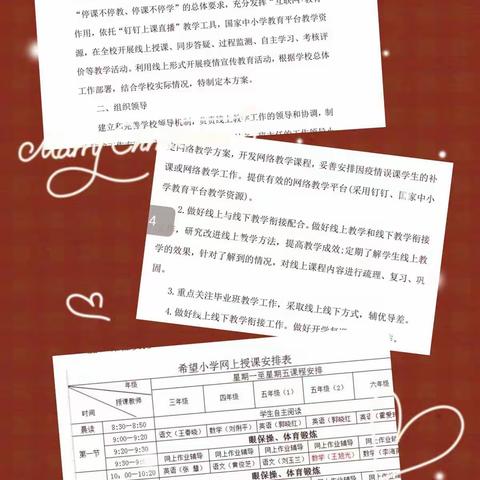 “停课不停教、停课不停学”的总体要求，充分发挥“互联网+教育”
作用，依托“钉钉上课直播”教学工具，国家中小学教育平台教学资
源，在全校开展线上授课、同步答疑、过程监测、自主学习、考核评
价等教学活动。利用线上形式开展疫情宣传教育活动，根据学校总体
工作部署，结合学校实际情况，特制定本方案。
二、组织领导
建立和完善学校领导机制，负责线上教学工作的领导和协调，制
网络教学方案，开发网络教学课程，妥善安排因疫情误课学生的补
课或网络教学工作。提供有效的网络教学平台(采用钉钉、国家中小
学教育平台教学资源)。
4
2.做好线上与线下教学衔接配合。做好线上教学和线下教学衔接
，研究改进线上教学方法，提高教学成效;定期了解学生线上教
学的效果，针对了解到的情况，对线上课程内容进行疏理、复习、巩
固。
3.重点关注毕业班教学工作，采取线上线下方式，辅优导差。
4.做好线上线下教学衔接工作。做好开学
希望小学网上授课安排表
星期一至星期五课程安排
年级
授课教师
时间
三年级 四年级 五年级（1） 五年级（2） 六年级
学生自主阅读
晨读 8:30-8:50
9:00-9:20 语文（王春晓） 数学（刘俐平） 英语（郭晓红） 英语（郭晓红）
眼保操、体育锻炼
第一节 9:20-9:30 网上作业辅导 网上作业辅导 网上作业辅导 网上作业辅导 网上作业辅导
10:00-10:20 英语（张 慧） 语文（黄俊芝） 语文（刘玉兰） 数学（王旭光）
眼保操、体育锻炼
网上作业辅导 网上作业辅导